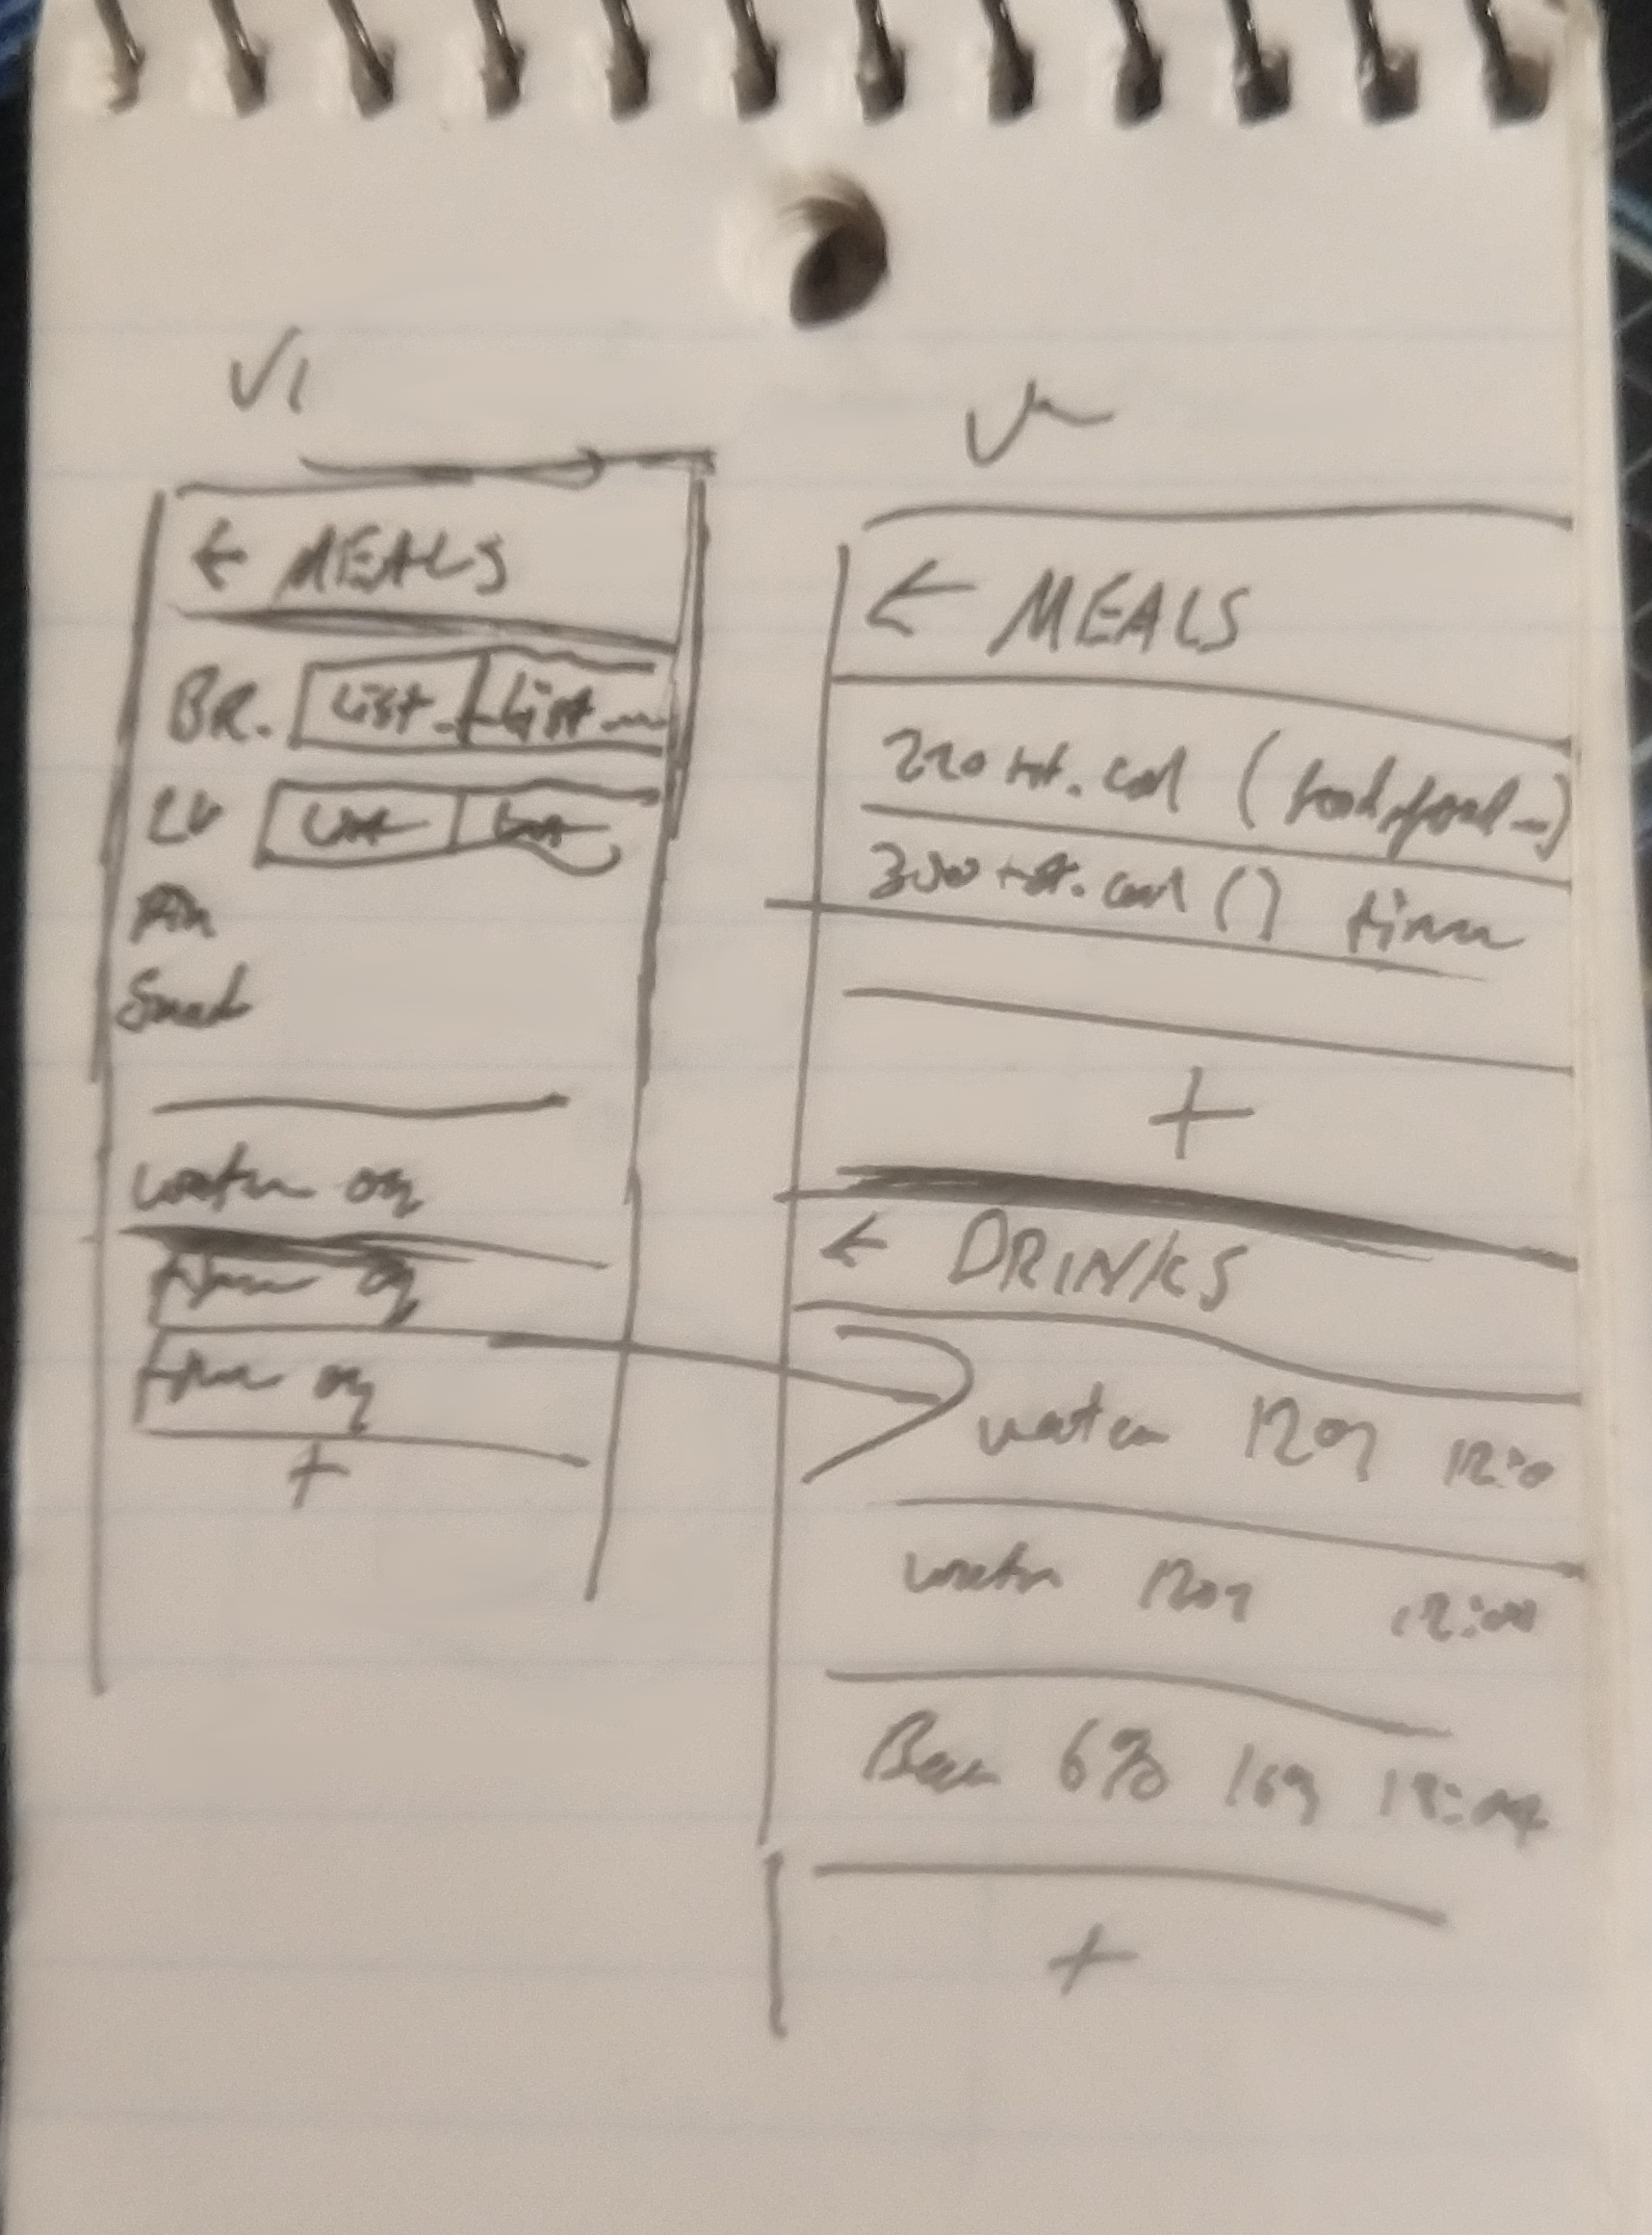 V1
← MEALS
BR. List List
LU List List
Din
Snack
water oz
time oz
time oz
+
← MEALS
220 tot. cal (food, food...)
300 tot. cal () time
+
← DRINKS
water 12oz 12:00
water 12oz 12:00
Beer 6% 16oz
+